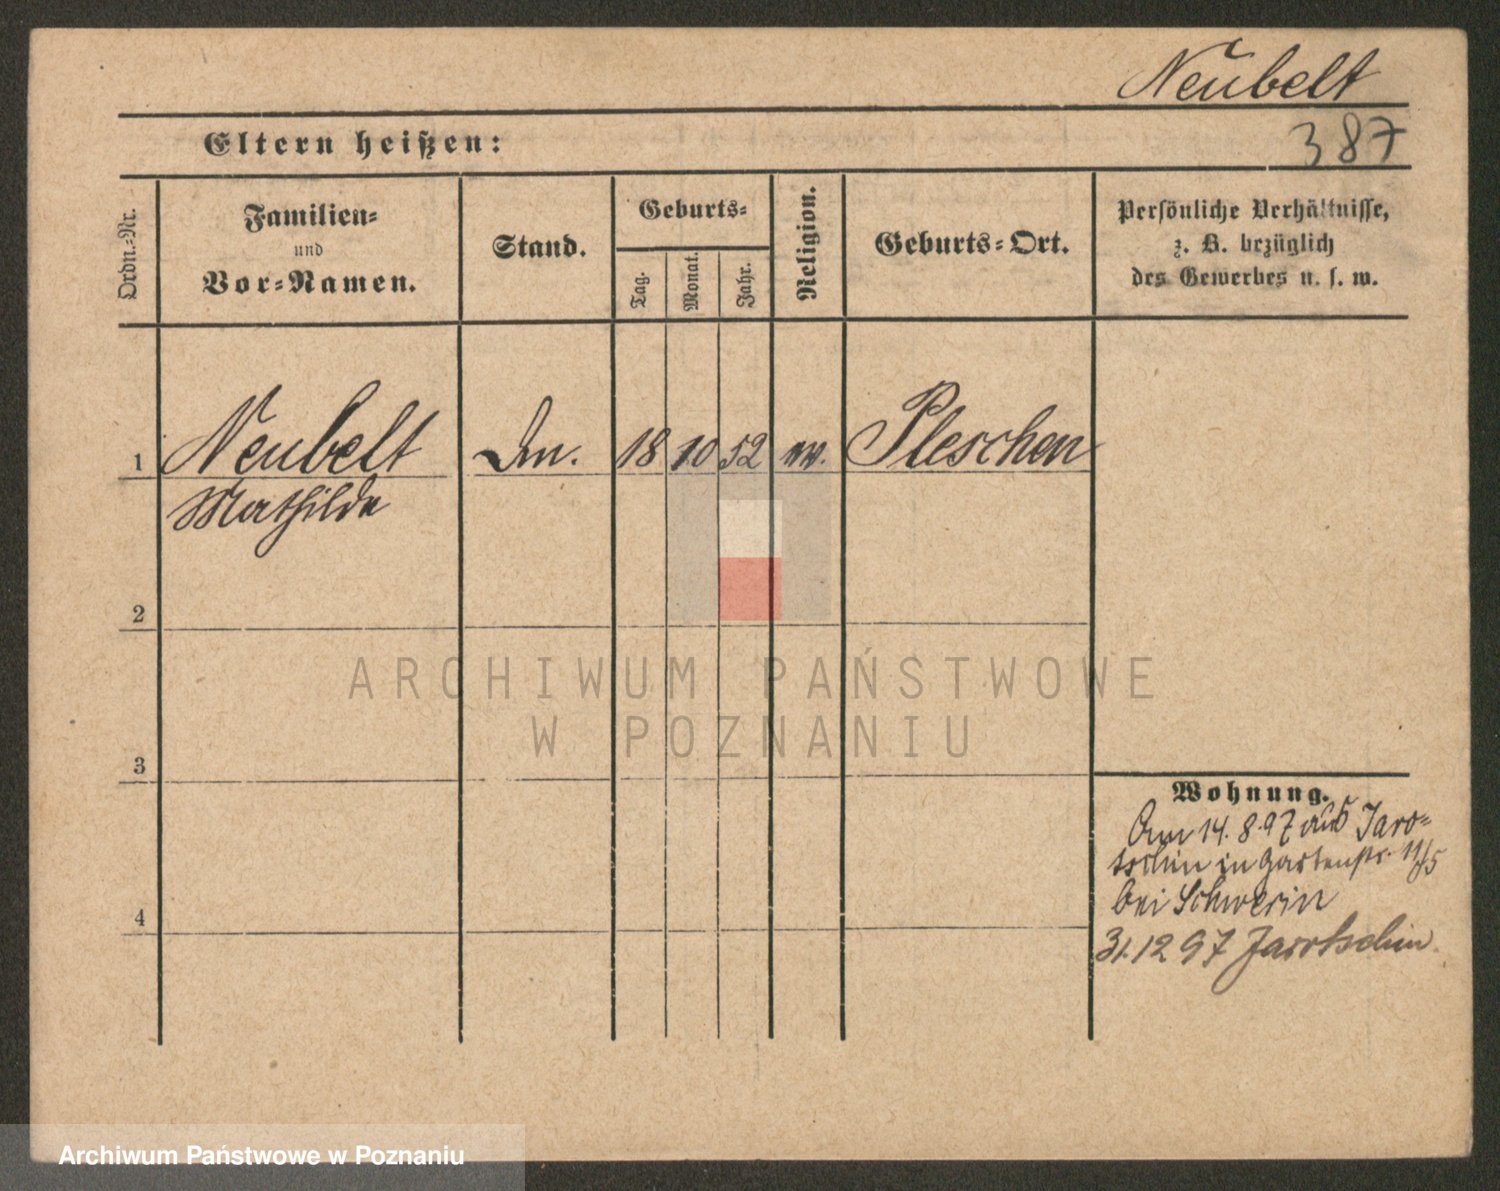 Neubelt
387
Eltern heißen:
Ordn.-Nr.
Familien-
und
Vor-Namen.
Stand.
Geburts-
Tag.
Monat.
Jahr.
Religion.
Geburts-Ort.
Persönliche Verhältnisse,
z. B. bezüglich
des Gewerbes u. s. w.
1 Neubelt 18 10 52 Pleschen
Mathilde
2
3
4
Wohnung.
Am 14.8.97 aus Jaro-
tschin in Gartenstr. 11/5
bei Schwerin
31.12 97 Jarotschin
ARCHIWUM PAŃSTWOWE
W POZNANIU
Archiwum Państwowe w Poznaniu